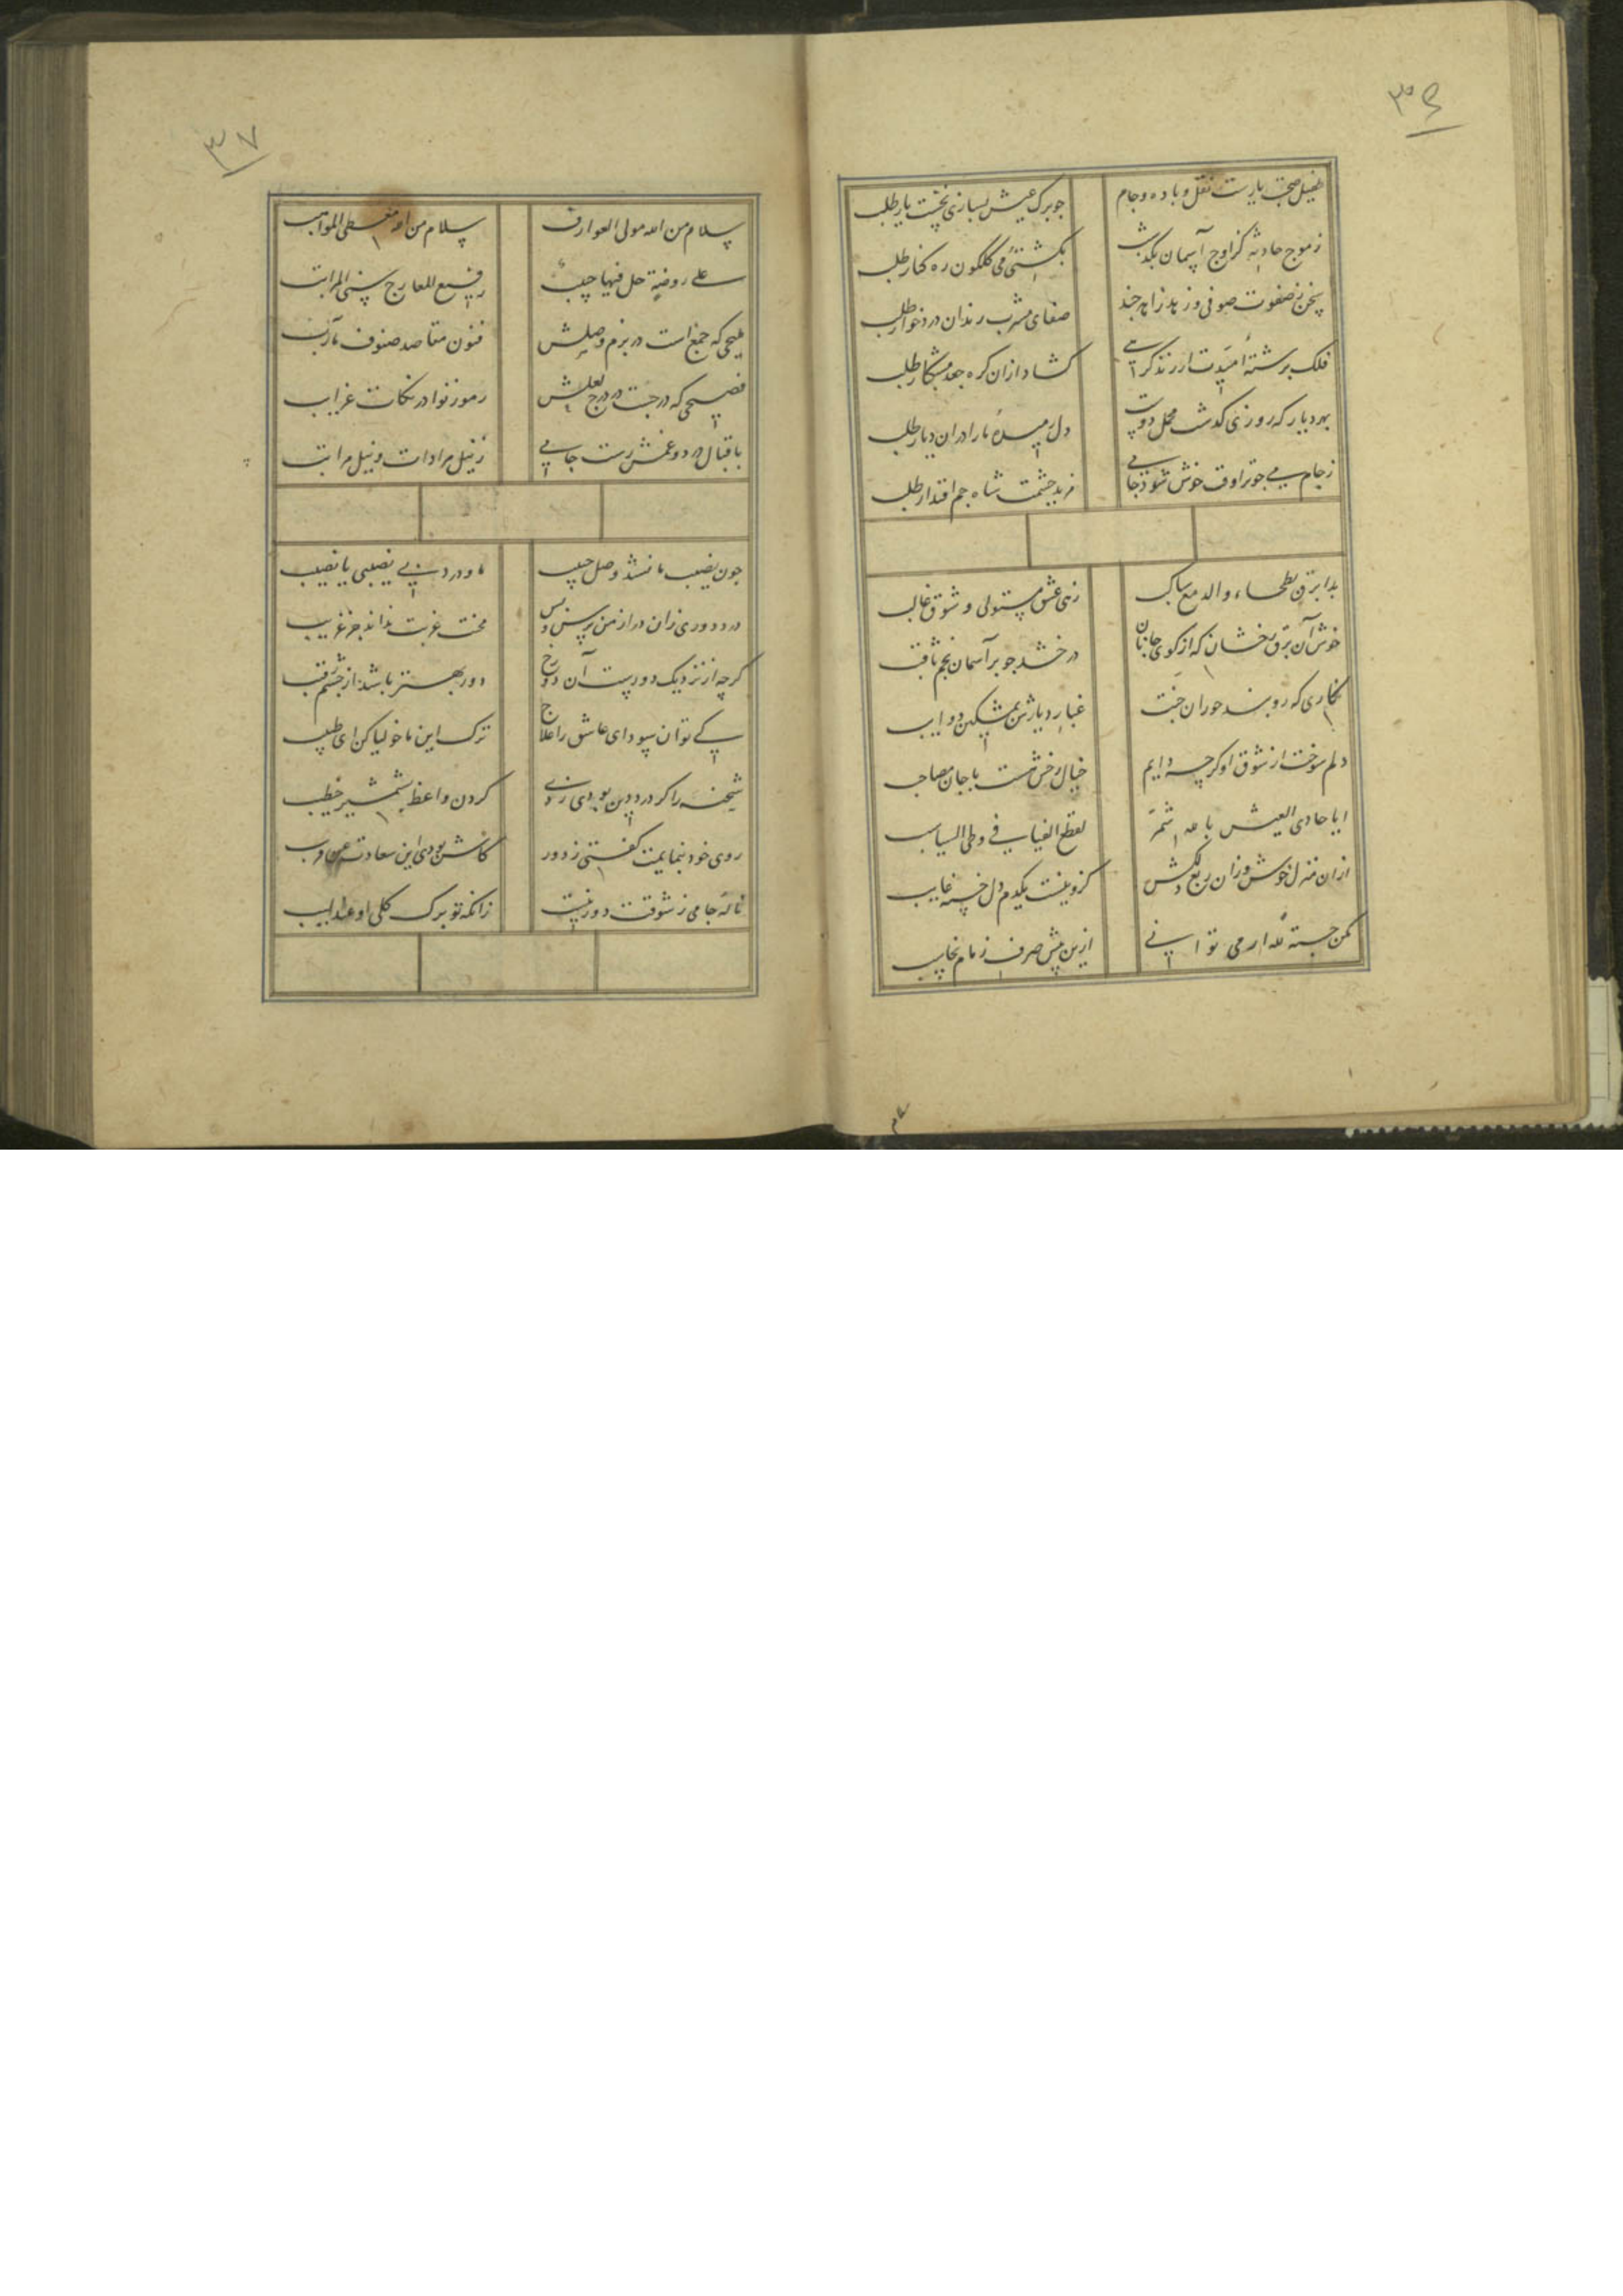 ۳۶
طفیل صحبت یارست نقل و باده و جام
چو برک عیش بسازی نخست یار طلب
ز موج حادثه کز اوج آسمان بکذشت
بکشتی می کلکون ره کنار طلب
سخن ز صفوت صوفی و زهد زاهد چند
صفای مشرب رندان درد خوار طلب
فلک برشته امیدت ار زند کرهی
کشاد ازان کره جعد مشکبار طلب
بهر دیار که روزی کذشت محمل دوست
دل رمیده ما را دران دیار طلب
ز جام می چو ترا وقت خوش شود جامی
مزید حشمت شاه جم اقتدار طلب
بدا برق بطحاء و الدمع ساکب
زهی عشق مستولی و شوق غالب
خوش آن برق رخشان که از کوی جانان
درخشد چو بر آسمان نجم ثاقب
نکاری که روبند حوران جنت
غبار دیارش بمشکین ذوایب
دلم سوخت از شوق او کرچه دایم
خیال رخش هست با جان مصاحب
ایا حادی العیس بالله شمر
لقطع الفیافی و طی السباسب
ازان منزل خوش وزان ربع دلکش
کزو نیست یکدم دل خسته غایب
مکن جسته لله ار می توانی
ازین بیش صرف زمام نجایب
۳۷
سلام من الله مولی العوارف
سلام من الله معطی المواهب
علی روضة حل فیها حبیب
رفیع المعارج سنی المراتب
ملیحی که جمع است در بزم وصلش
فنون مقاصد صنوف مآرب
فصیحی که درجست در درج لعلش
رموز نوادر نکات غرایب
باقبال درد و غمش رست جامی
ز نیل مرادات و نیل مراتب
چون نصیب ما نشد وصل حبیب
ما و درد بی نصیبی یا نصیب
درد دوری زان دراز من پرس و بس
محنت غربت نداند جز غریب
کرچه از نزدیک دورست آن دو رخ
دور بهتر باشد از چشم رقیب
کی توان سودای عاشق را علاج
ترک این ماخولیا کن ای طبیب
شحنه را کر درد دین بودی زدی
کردن واعظ بشمشیر خطیب
روی خود بنمایمت کفتی ز دور
کاش بودی این سعادت عن قریب
ناله جامی ز شوقت دور نیست
زانکه تو برک کلی او عندلیب